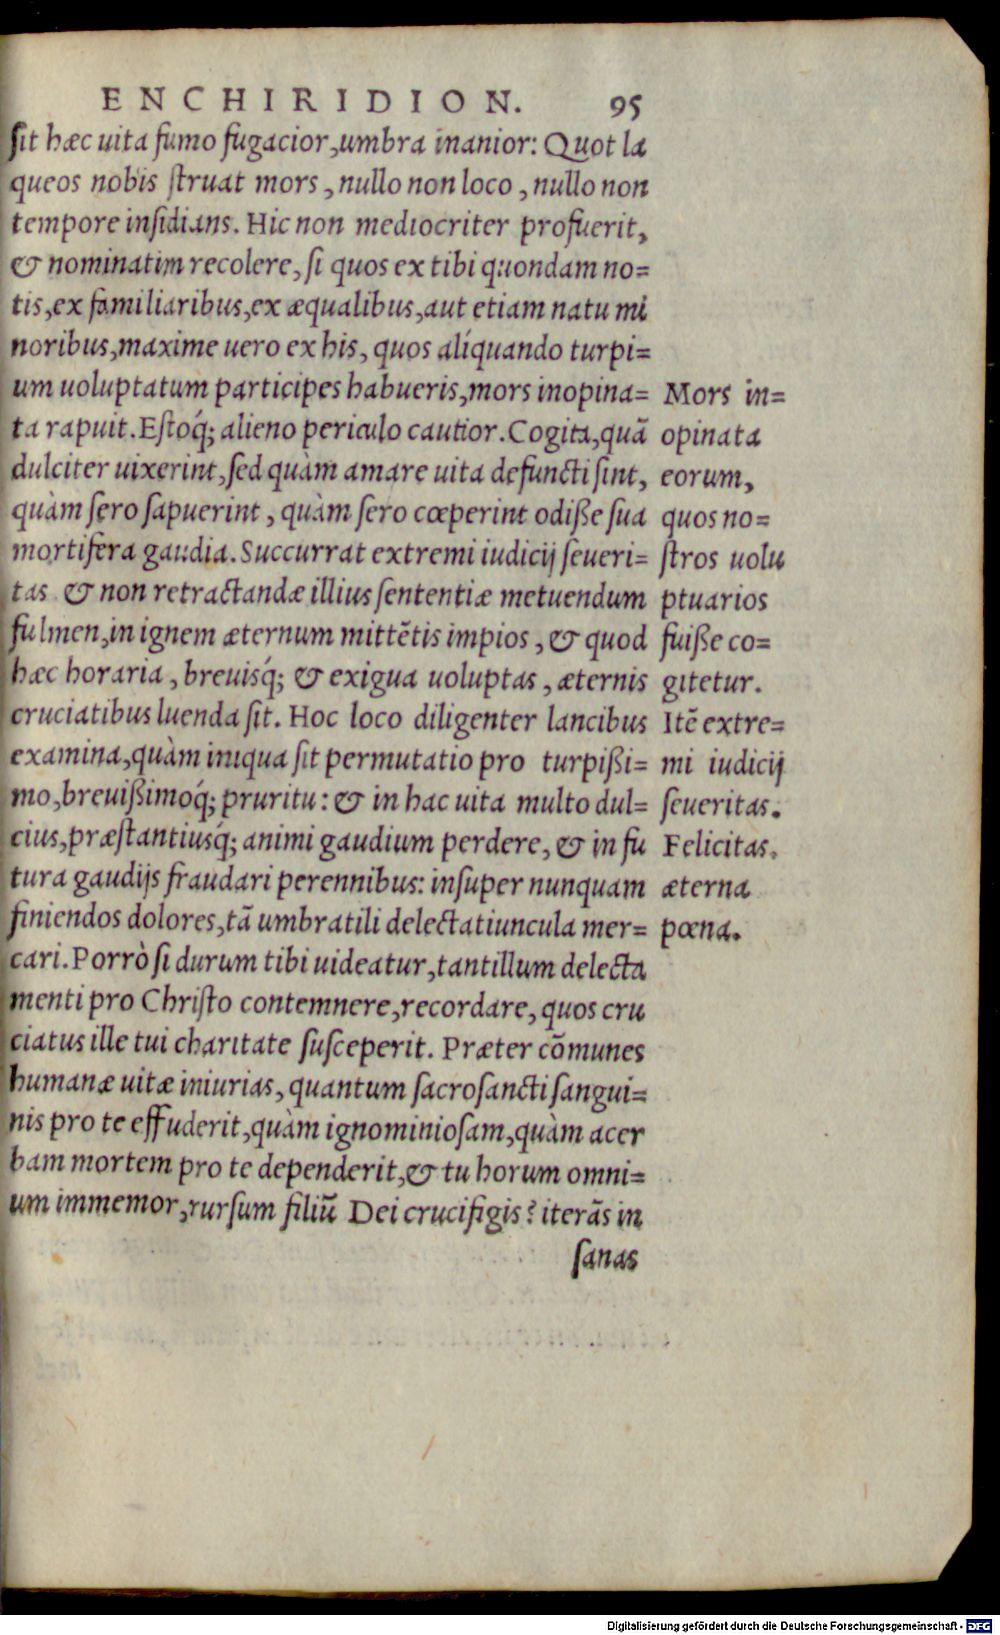 ENCHIRIDION. 95
ſit hæc uita fumo fugacior, umbra inanior: Quot la
queos nobis ſtruat mors, nullo non loco, nullo non
tempore inſidians. Hic non mediocriter profuerit,
& nominatim recolere, ſi quos ex tibi quondam no=
tis, ex familiaribus, ex æqualibus, aut etiam natu mi
noribus, maxime uero ex his, quos alíquando turpi=
um uoluptatum participes habueris, mors inopina=
ta rapuit. Eſtoq́; alieno periculo cautior. Cogita, quã
dulciter uixerint, ſed quàm amare uita defuncti ſint,
quàm ſero ſapuerint, quàm ſero cœperint odiße ſua
mortifera gaudia. Succurrat extremi iudicij ſeueri=
tas & non retractandæ illius ſententiæ metuendum
fulmen, in ignem æternum mittẽtis impios, & quod
hæc horaria, breuisq́; & exigua uoluptas, æternis
cruciatibus luenda ſit. Hoc loco diligenter lancibus
examina, quàm iniqua ſit permutatio pro turpißi=
mo, breuißimoq́; pruritu: & in hac uita multo dul=
cius, præſtantiusq́; animi gaudium perdere, & in fu
tura gaudijs fraudari perennibus: inſuper nunquam
finiendos dolores, tã umbratili delectatiuncula mer=
cari. Porrò ſi durum tibi uideatur, tantillum delecta
menti pro Chriſto contemnere, recordare, quos cru
ciatus ille tui charitate ſuſceperit. Præter cõmunes
humanæ uitæ iniurias, quantum ſacroſancti ſangui=
nis pro te effuderit, quàm ignominioſam, quàm acer
bam mortem pro te dependerit, & tu horum omni=
um immemor, rurſum filiũ Dei crucifigis? iterãs in
ſanas
Mors in=
opinata
eorum,
quos no=
ſtros uolu
ptuarios
fuiße co=
gitetur.
Itẽ extre=
mi iudicij
ſeueritas.
Felicitas.
æterna
pœna.
Digitalisierung gefördert durch die Deutsche Forschungsgemeinschaft - DFG